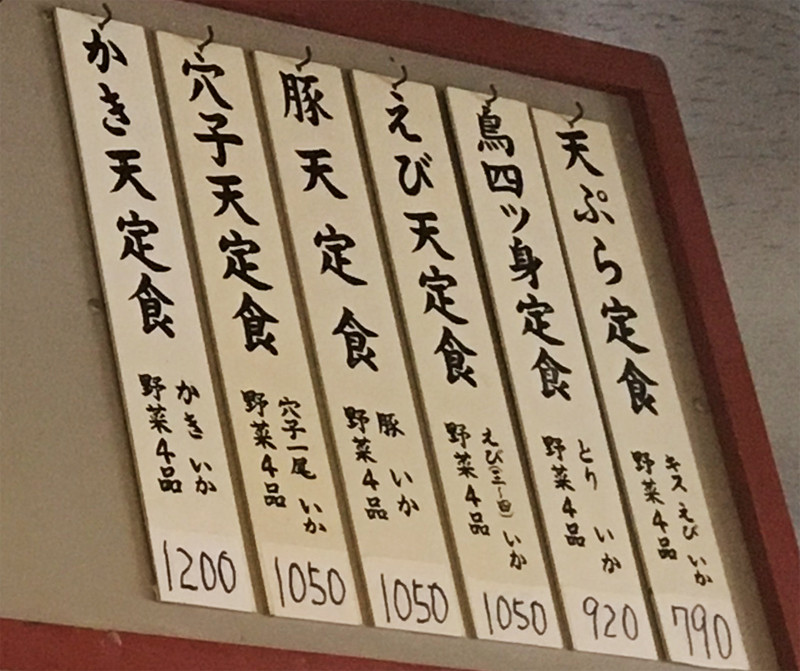 天ぷら定食
キス えび いか
野菜4品
790
鳥四ツ身定食
とり いか
野菜4品
920
えび天定食
えび(三〜四) いか
野菜4品
1050
豚天定食
豚 いか
野菜4品
1050
穴子天定食
穴子一尾 いか
野菜4品
1050
かき天定食
かき いか
野菜4品
1200